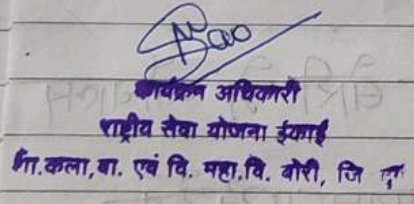 कार्यक्रम अधिकारी
राष्ट्रीय सेवा योजना ईकाई
शा.कला,वा. एवं वि. महा.वि. बोरी, जि